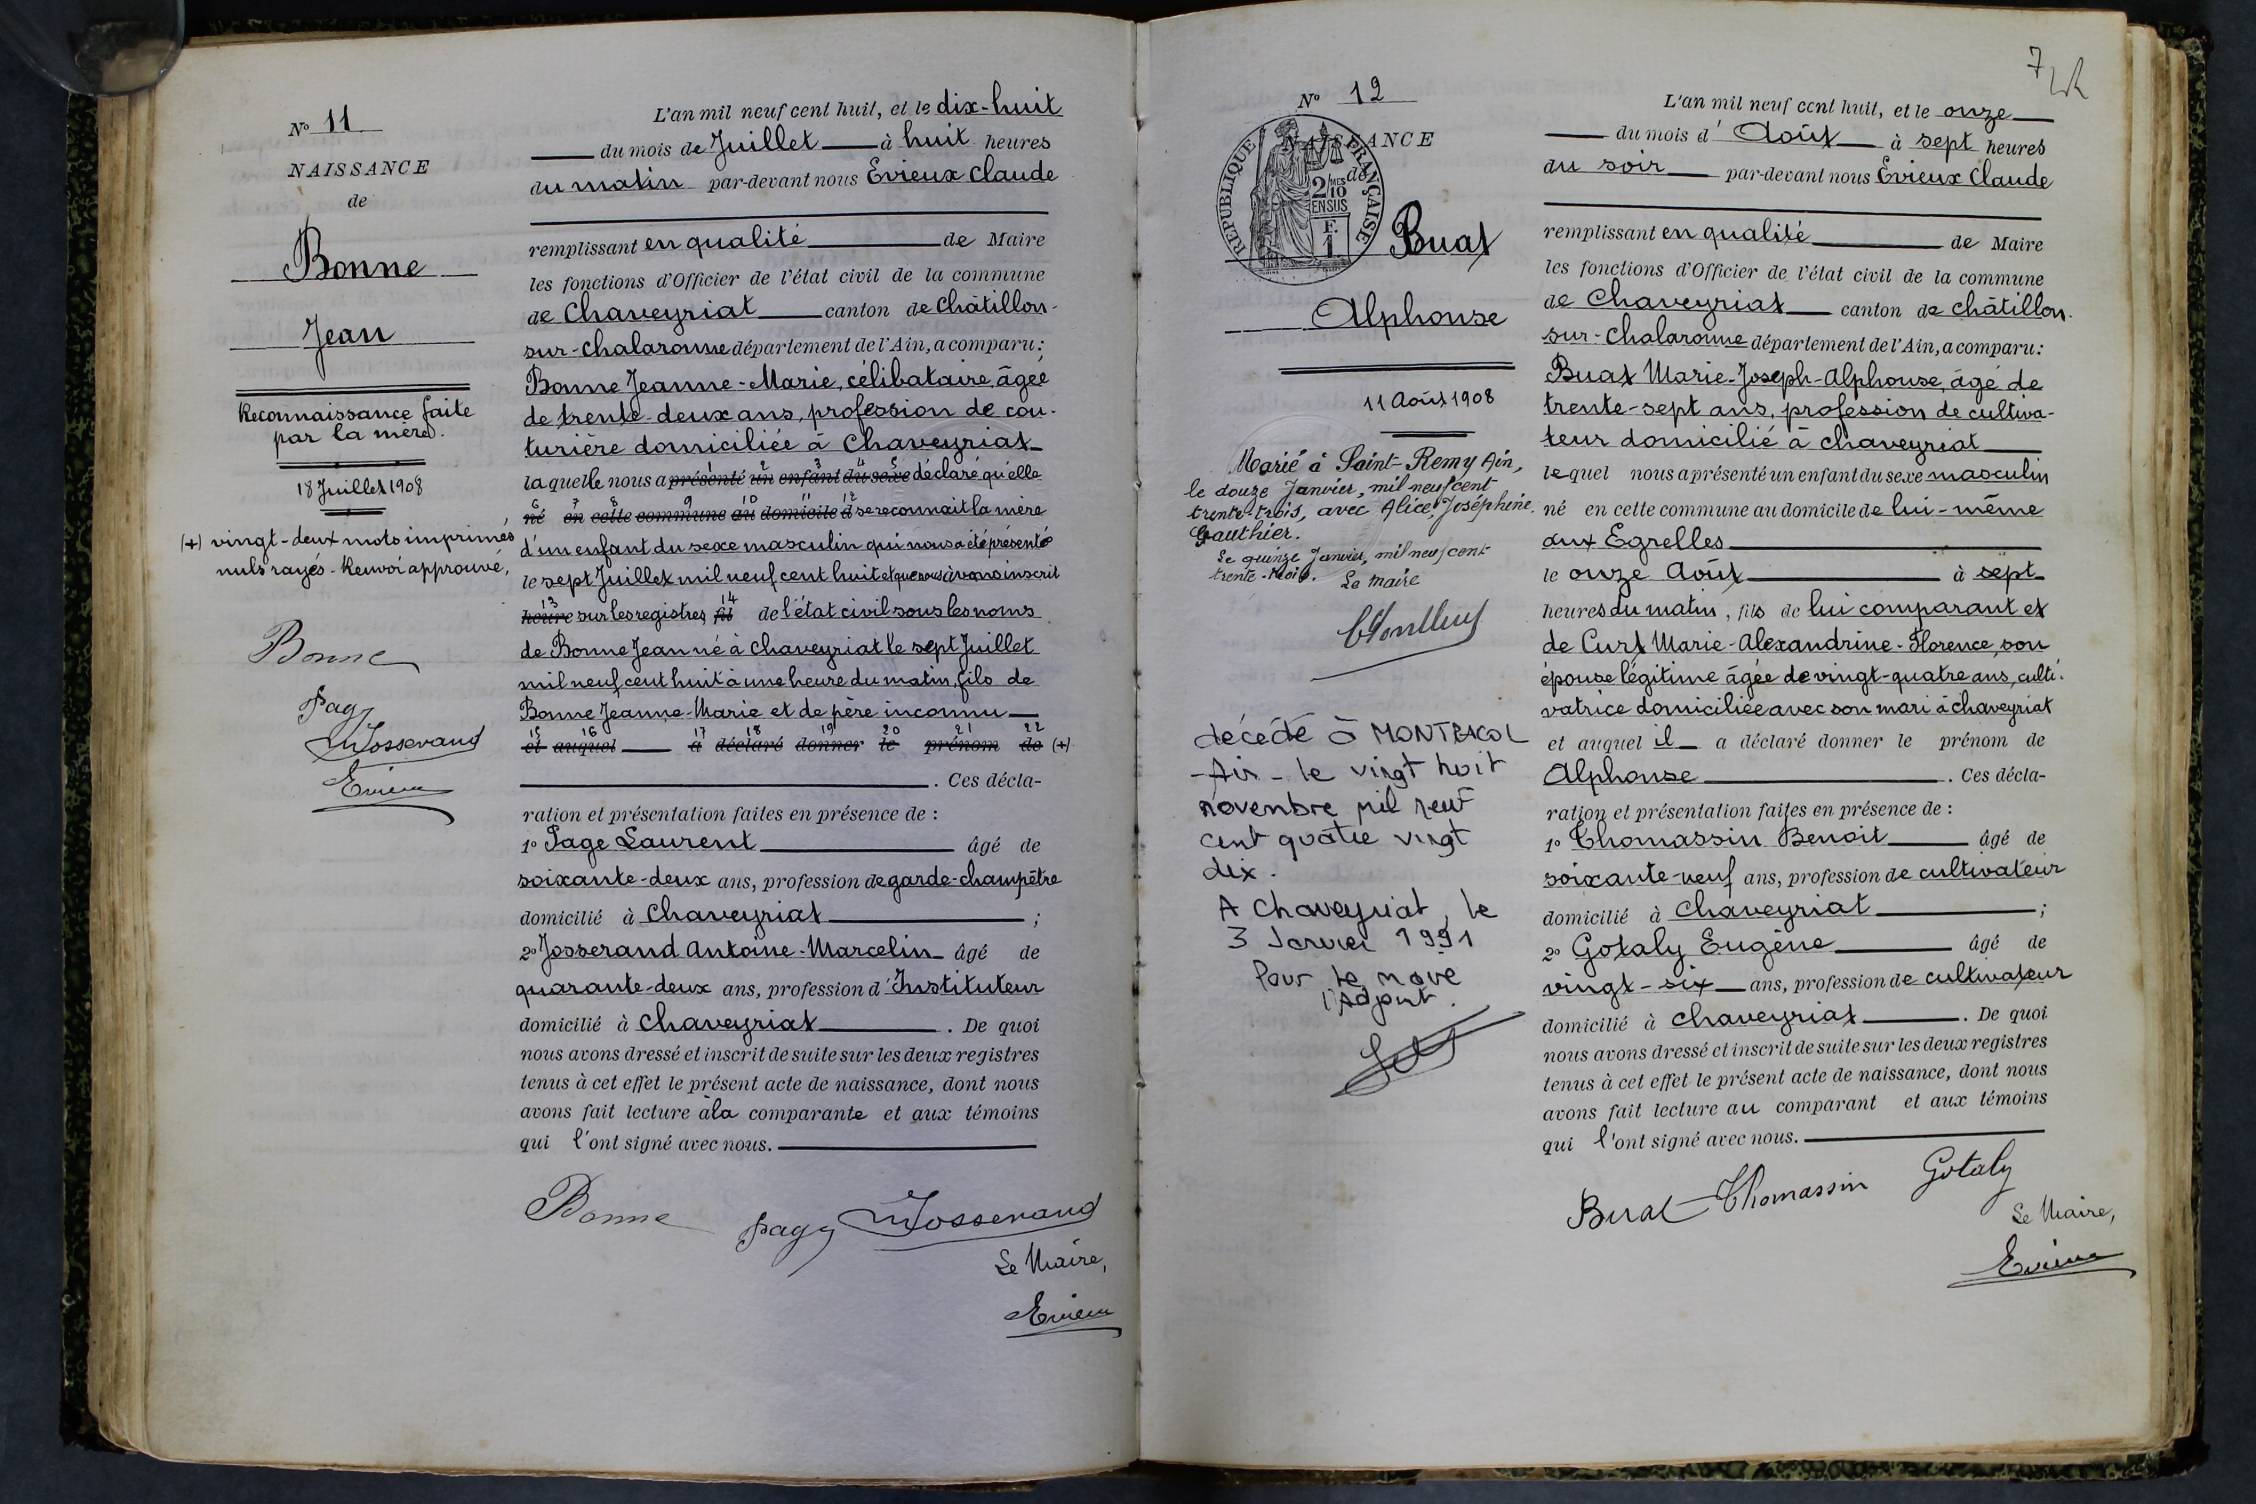 Nº 11
NAISSANCE
de
Bonne
Jean
Reconnaissance faite
par la mère.
18 Juillet 1908
(+) vingt-deux mots imprimés
nuls rayés - Renvoi approuvé,
Bonne
Page
Josserand
Evieux
L'an mil neuf cent huit, et le dix-huit
du mois de Juillet à huit heures
du matin par-devant nous Evieux Claude
remplissant en qualité de Maire
les fonctions d'Officier de l'état civil de la commune
de Chaveyriat canton de Châtillon-
sur-Chalaronne département de l'Ain, a comparu :
Bonne Jeanne-Marie, célibataire, âgée
de trente-deux ans, profession de cou-
turière domiciliée à Chaveyriat
laquelle nous a présenté un enfant du sexe déclaré qu'elle
né en cette commune au domicile d se reconnait la mère
d'un enfant du sexe masculin qui nous a été présenté
le sept Juillet mil neuf cent huit et que nous avons inscrit
heure sur les registres fil de l'état civil sous les noms
de Bonne Jean né à Chaveyriat le sept Juillet
mil neuf cent huit à une heure du matin, fils de
Bonne Jeanne-Marie et de père inconnu
et auquel a déclaré donner le prénom de (+)
. Ces décla-
ration et présentation faites en présence de :
1º Page Laurent âgé de
soixante-deux ans, profession de garde-champêtre
domicilié à Chaveyriat ;
2º Josserand Antoine-Marcelin âgé de
quarante-deux ans, profession d'Instituteur
domicilié à Chaveyriat . De quoi
nous avons dressé et inscrit de suite sur les deux registres
tenus à cet effet le présent acte de naissance, dont nous
avons fait lecture à la comparante et aux témoins
qui l'ont signé avec nous.
Bonne Page Josserand
Le Maire,
Evieux
7
Nº 12
NAISSANCE
de
RÉPUBLIQUE FRANÇAISE
2/10 MES
EN SUS
F.
1
Buat
Alphonse
11 Août 1908
Marié à Saint-Remy Ain,
le douze Janvier, mil neuf cent
trente-trois, avec Alice, Joséphine
Gauthier.
Le quinze Janvier, mil neuf cent
trente-trois. Le maire
décédé à MONTRACOL
- Ain - le vingt huit
novembre mil neuf
cent quatre vingt
dix.
A Chaveyriat, le
3 Janvier 1991
Pour le maire
l'Adjoint.
L'an mil neuf cent huit, et le onze
du mois d'Août à sept heures
du soir par-devant nous Evieux Claude
remplissant en qualité de Maire
les fonctions d'Officier de l'état civil de la commune
de Chaveyriat canton de Châtillon-
sur-Chalaronne département de l'Ain, a comparu :
Buat Marie-Joseph-Alphonse, âgé de
trente-sept ans, profession de cultiva-
teur domicilié à Chaveyriat
lequel nous a présenté un enfant du sexe masculin
né en cette commune au domicile de lui-même
aux Egrelles
le onze Août à sept
heures du matin, fils de lui comparant et
de Curt Marie-Alexandrine-Florence, son
épouse légitime âgée de vingt-quatre ans, culti-
vatrice domiciliée avec son mari à Chaveyriat
et auquel il a déclaré donner le prénom de
Alphonse . Ces décla-
ration et présentation faites en présence de :
1º Thomassin Benoit âgé de
soixante-neuf ans, profession de cultivateur
domicilié à Chaveyriat ;
2º Gotaly Eugène âgé de
vingt-six ans, profession de cultivateur
domicilié à Chaveyriat . De quoi
nous avons dressé et inscrit de suite sur les deux registres
tenus à cet effet le présent acte de naissance, dont nous
avons fait lecture au comparant et aux témoins
qui l'ont signé avec nous.
Buat Thomassin Gotaly
Le Maire,
Evieux